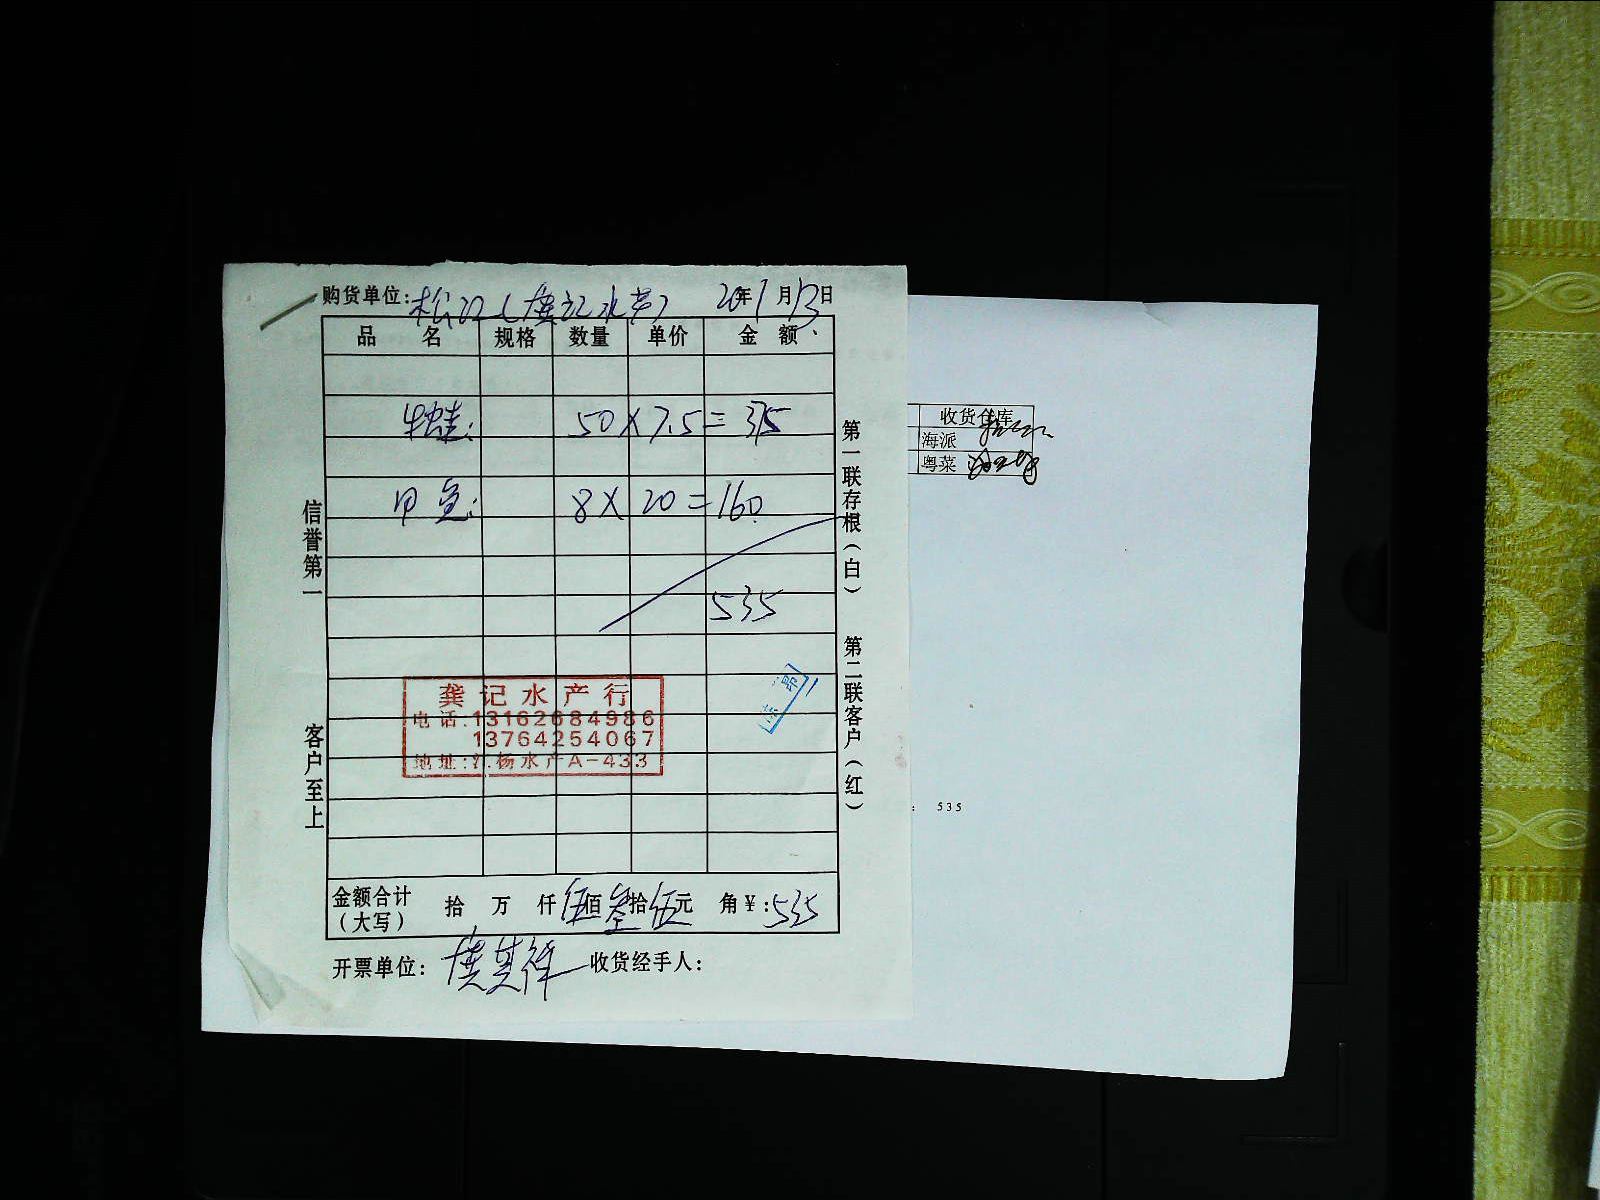 购货单位：松江（龚记水产） 20年1月13日
品名 规格 数量 单价 金额
牛蛙： 50×7.5=375
甲鱼： 8×20=160
535
信誉第一
客户至上
第一联存根（白） 第二联客户（红）
龚记水产行
电话：13162684986
13764254067
地址：江杨水产A-433
金额合计（大写） 拾 万 仟 伍佰叁拾伍元 角￥：535
开票单位： 收货经手人：
收货仓库
海派
粤菜
： 535